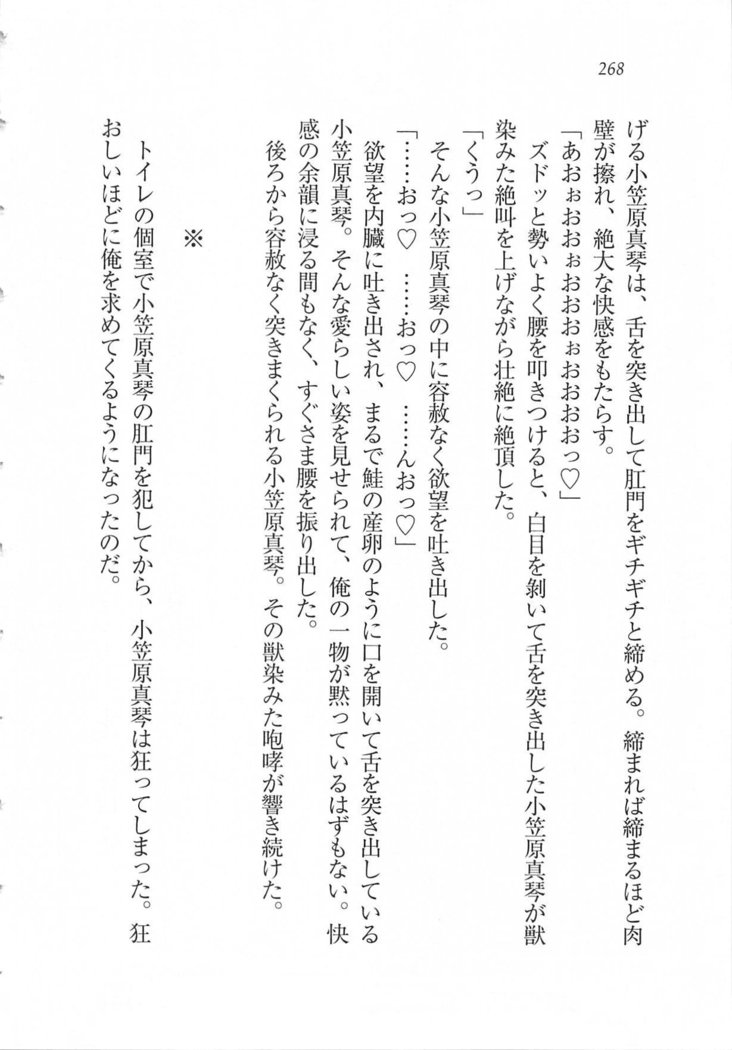 268
げる小笠原真琴は、舌を突き出して肛門をギチギチと締める。締まれば締まるほど肉
壁が擦れ、絶大な快感をもたらす。
「あおぉおおぉおおおぉおおおおっ♡」
ズドッと勢いよく腰を叩きつけると、白目を剝いて舌を突き出した小笠原真琴が獣
染みた絶叫を上げながら壮絶に絶頂した。
「くうっ」
そんな小笠原真琴の中に容赦なく欲望を吐き出した。
「……おっ♡　……おっ♡　……んおっ♡」
欲望を内臓に吐き出され、まるで鮭の産卵のように口を開いて舌を突き出している
小笠原真琴。そんな愛らしい姿を見せられて、俺の一物が黙っているはずもない。快
感の余韻に浸る間もなく、すぐさま腰を振り出した。
後ろから容赦なく突きまくられる小笠原真琴。その獣染みた咆哮が響き続けた。
※
トイレの個室で小笠原真琴の肛門を犯してから、小笠原真琴は狂ってしまった。狂
おしいほどに俺を求めてくるようになったのだ。